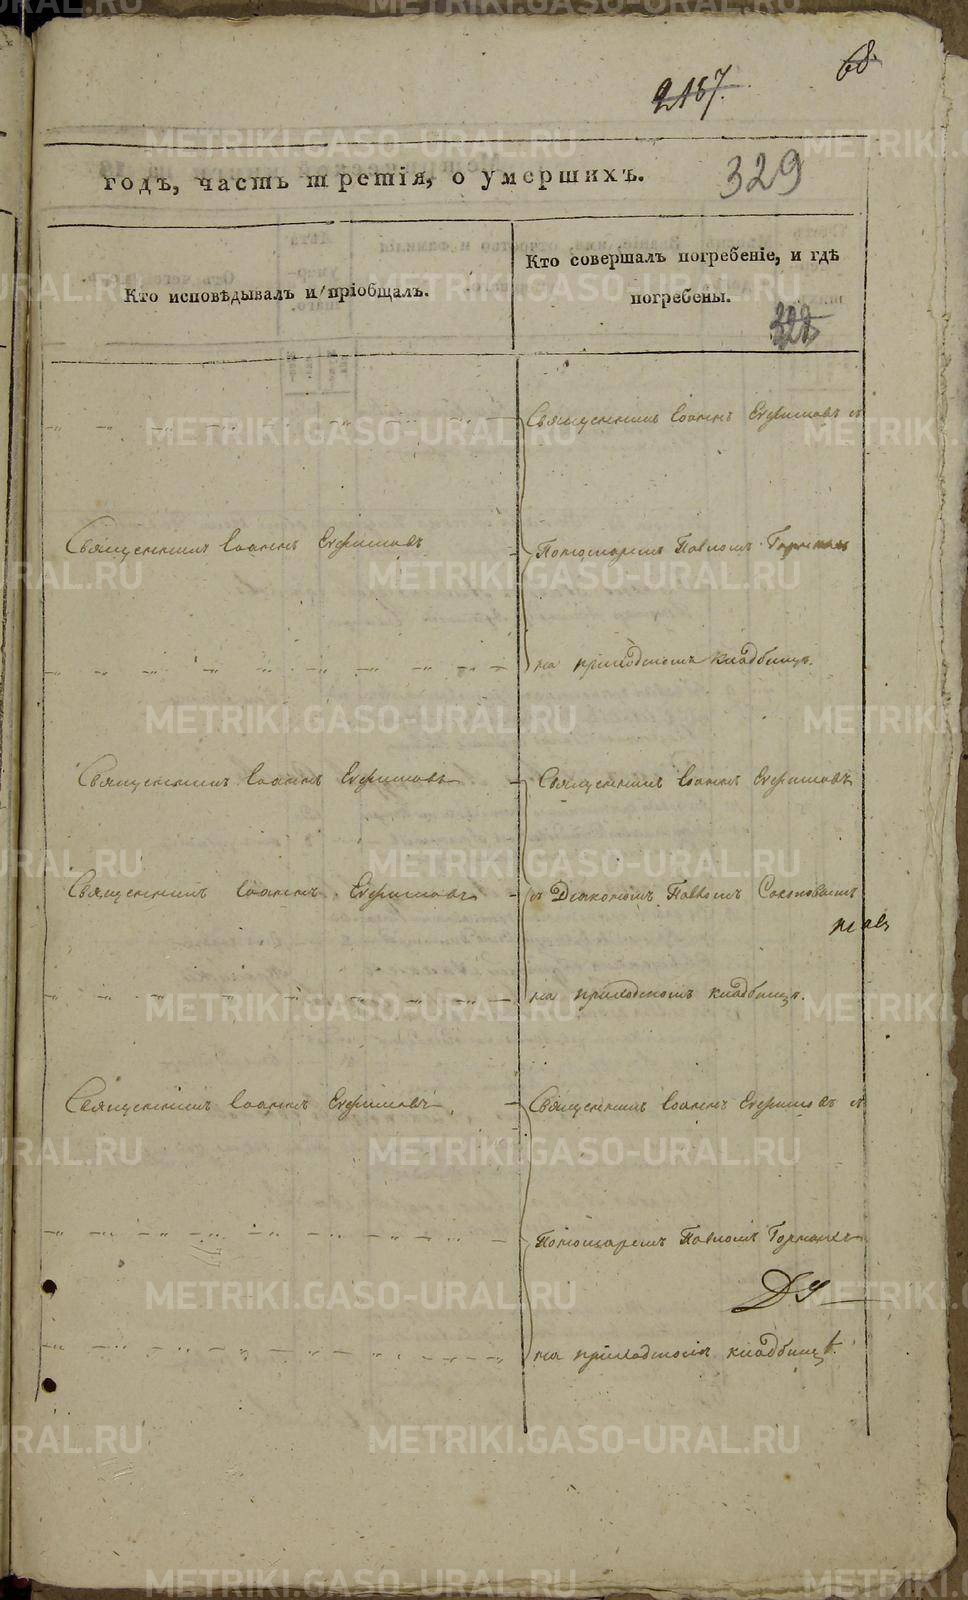 68.
2187.
годъ, часть третія, о умершихъ.
329
Кто исповѣдывалъ и пріобщалъ.
Кто совершалъ погребеніе, и гдѣ
погребены.
Священникъ Іоаннъ Ефимовъ съ
Священникъ Іоаннъ Ефимовъ
Пономаремъ Павломъ
на приходскомъ кладбищѣ.
Священникъ Іоаннъ Ефимовъ
Священникъ Іоаннъ Ефимовъ
Священникъ Іоаннъ Ефимовъ
съ Діакономъ Павломъ
на приходскомъ кладбищѣ.
Священникъ Іоаннъ Ефимовъ
Священникъ Іоаннъ Ефимовъ съ
Пономаремъ Павломъ
на приходскомъ кладбищѣ.
METRIKI.GASO-URAL.RU